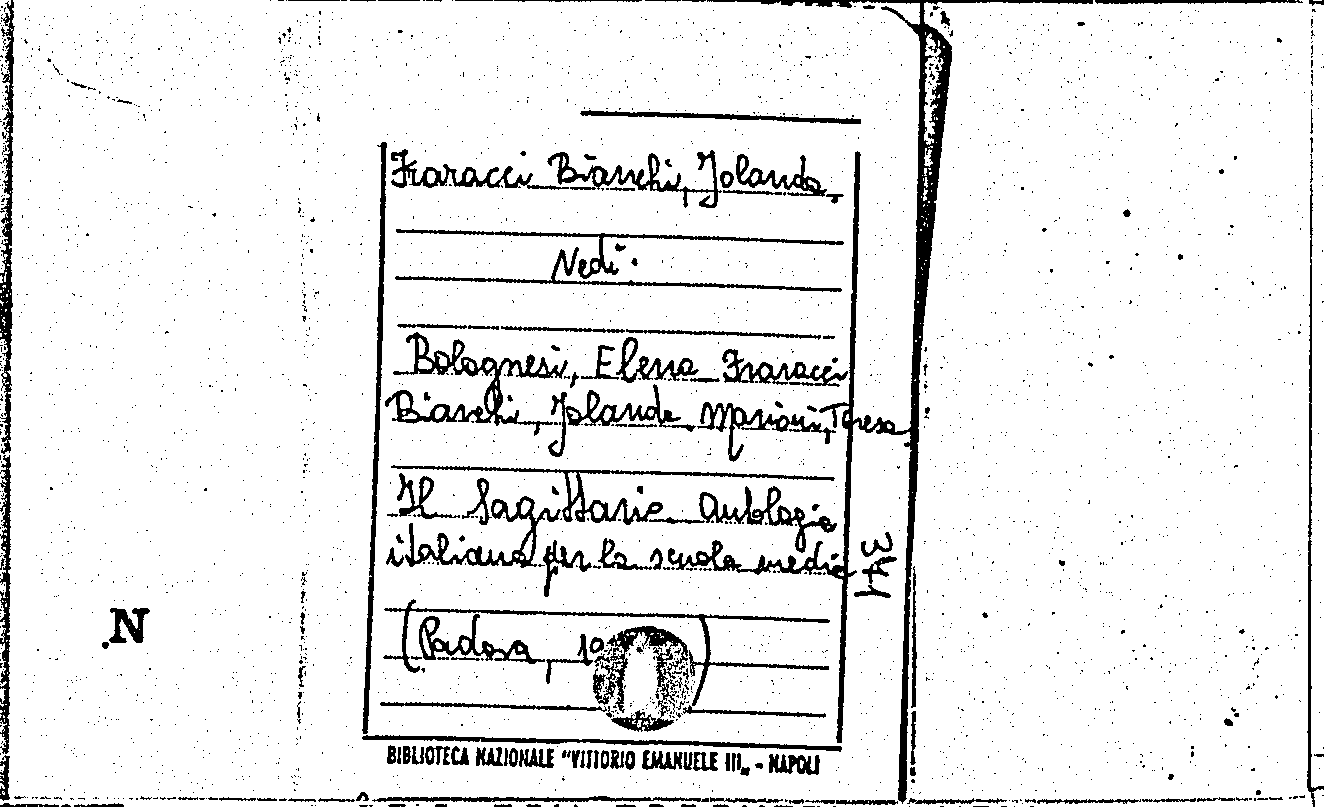 Fraracci Bianchi, Jolanda.
Vedi.
Bolognesi, Elena Fraracci
Bianchi, Jolanda Marioni, Teresa
Il Sagittario Antologia
italiana per la scuola media
(Padova, 19 )
341
.N
BIBLIOTECA NAZIONALE "VITTORIO EMANUELE III„ - NAPOLI